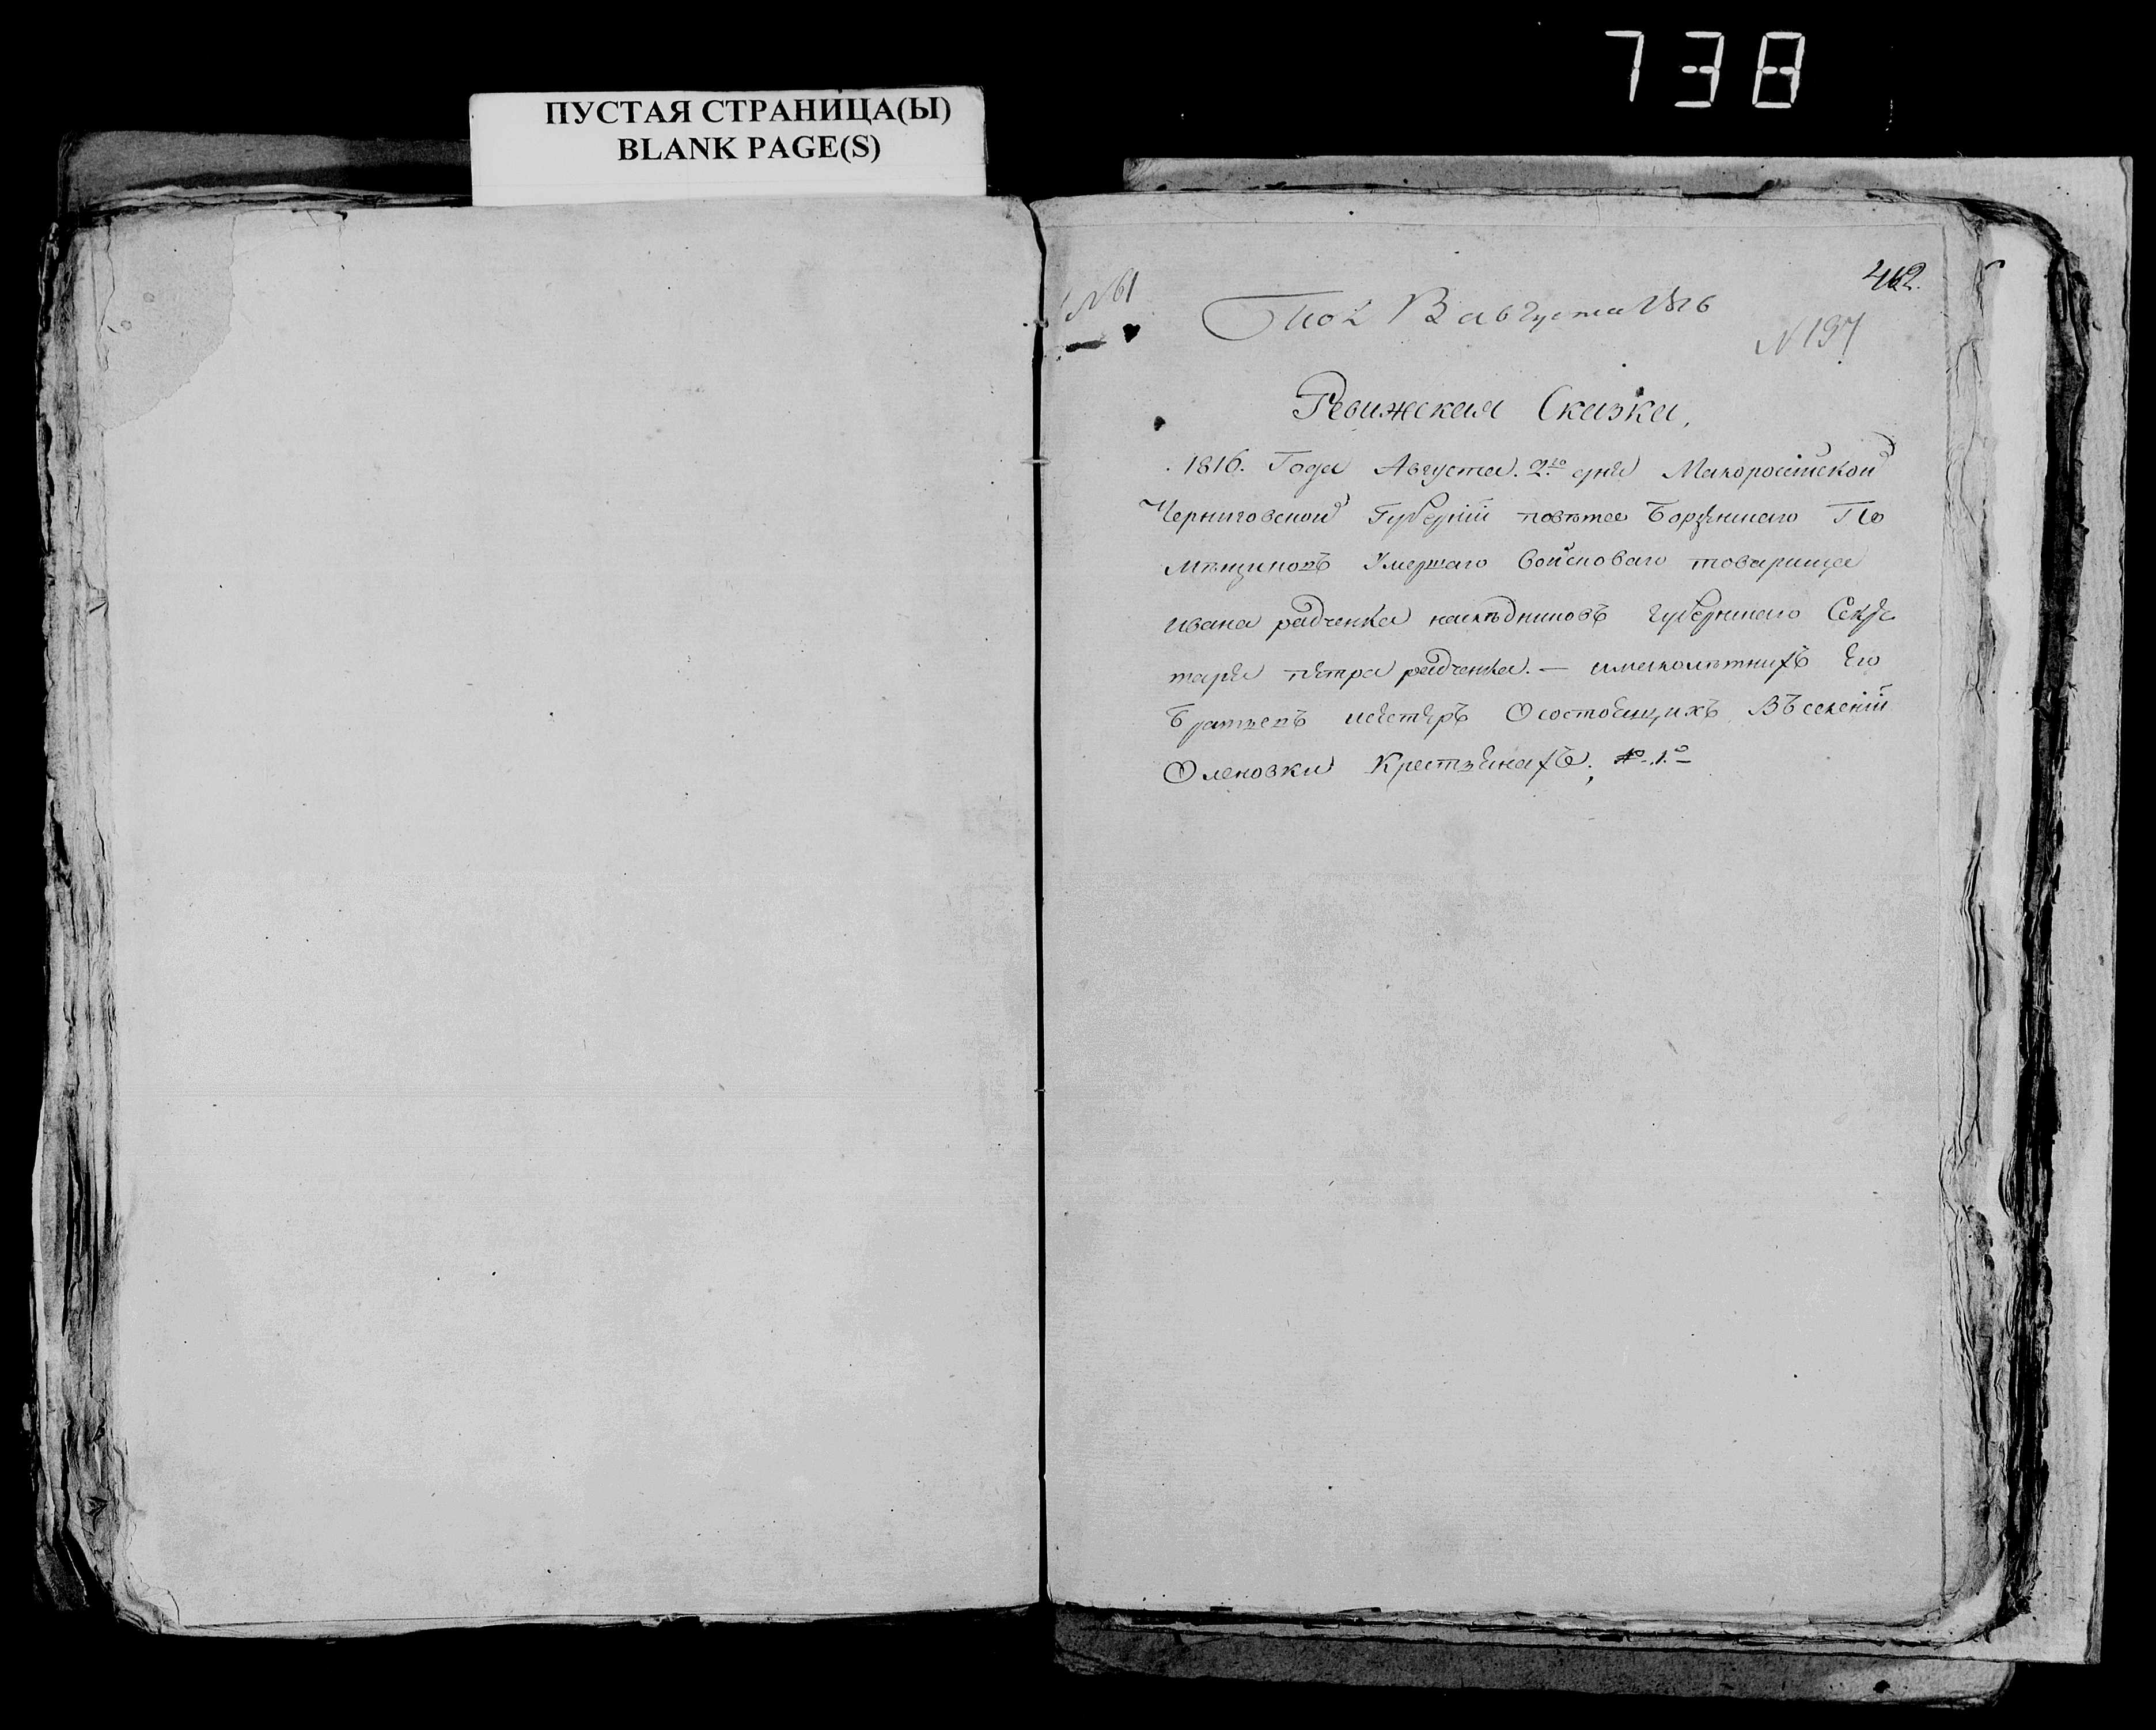 738
ПУСТАЯ СТРАНИЦА(Ы)
BLANK PAGE(S)
462.
№ 61
августа 1816
№ 197
Ревижская Сказка,
1816. Года Августа. 2го дня Малоросійской
Черниговской Губерніи повѣта Борзенского По
мѣщиковъ Умершаго Войсковаго товарища
ивана радченка наслѣдниковъ Губернскаго Секре
таря петра радченка. — ималолѣтнихъ Его
Братьевъ исестеръ Осостоящихъ Въселеніи
Оленовки Крестьянахъ;